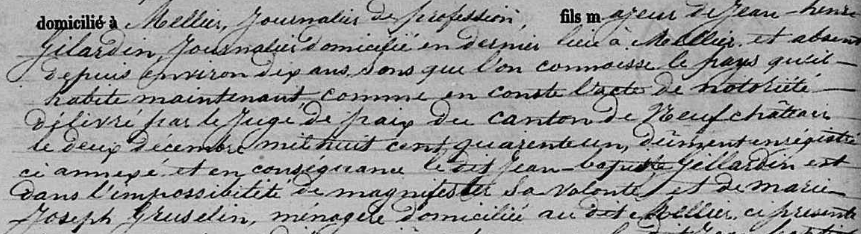 domicilié à Mellier, Journalier de profession, fils majeur de Jean-henri
Gilardin, Journalier domicilié en dernier lieu à Mellier et absent
depuis environ dix ans, sans que l'on connoisse le pays qu'il
habite maintenant, comme en conste l'acte de notoriété
délivré par le Juge de paix du canton de Neufchâteau
le deux décembre mil huit cent quarente un, dûment enrégistré
ci annexé et en conséquance le dit Jean-baptiste Gillardin est
dans l'impossibiteté de magnifester sa volonté et de marie
Joseph Gruselin, ménagère domiciliée au dit Mellier, ci présente